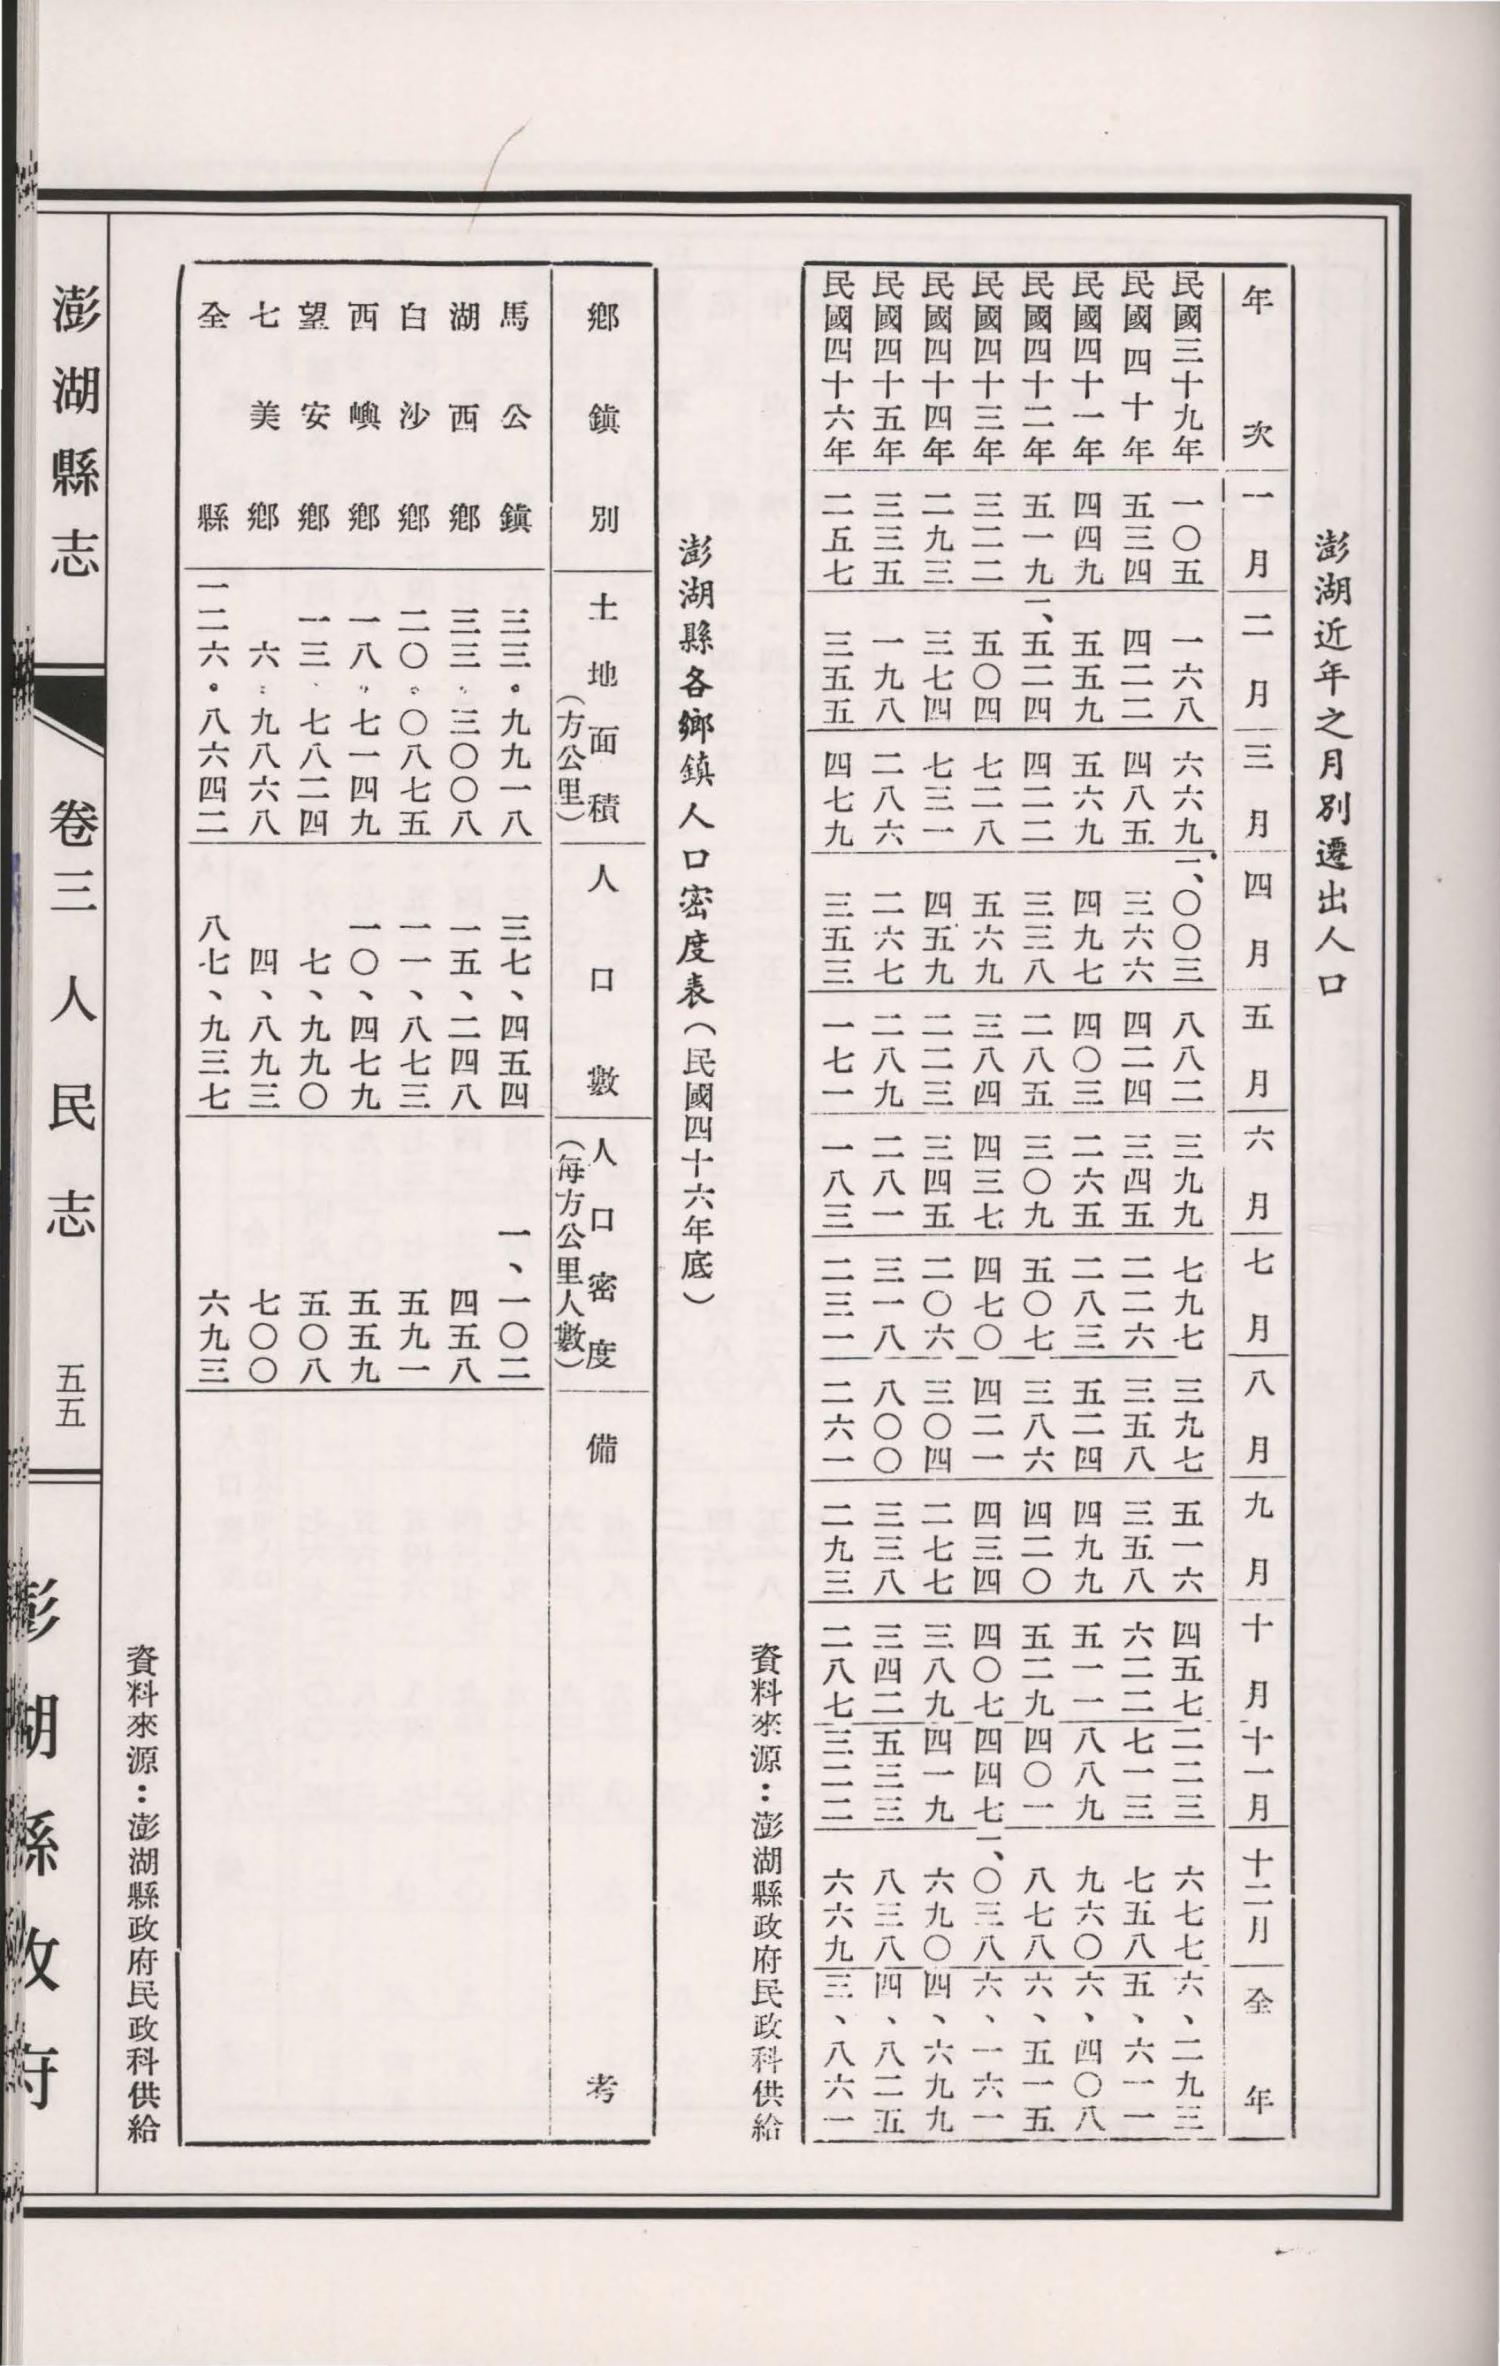 澎湖近年之月別遷出人口
年次 一月 二月 三月 四月 五月 六月 七月 八月 九月 十月 十一月 十二月 全年
民國三十九年 一〇五 一六八 六六九 一、〇〇三 八八二 三九九 七九七 三九七 五一六 四五七 二二三 六七七 六、二九三
民國四十年 五三四 四二二 四八五 三六六 四二四 三四五 二二六 三五八 三五八 六二二 七一三 七五八 五、六一一
民國四十一年 四四九 五五九 五六九 四九七 四〇三 二六五 二八三 五二四 四九九 五一一 八八九 九六〇 六、四〇八
民國四十二年 五一九 一、五二四 四二二 三三八 二八五 三〇九 五〇七 三八六 四二〇 五二九 四〇一 八七八 六、五一五
民國四十三年 三二二 五〇四 七二八 五六九 三八四 四三七 四七〇 四二一 四三四 四〇七 四四七 一、〇三八 六、一六一
民國四十四年 二九三 三七四 七三一 四五九 二二三 三四五 二〇六 三〇四 二七七 三八九 四一九 六九〇 四、六九九
民國四十五年 三三五 一九八 二八六 二六七 二八九 二八一 三一八 八〇〇 三三八 三四二 五三三 八三八 四、八二五
民國四十六年 二五七 三五五 四七九 三五三 一七一 一八三 二三一 二六一 二九三 二八七 三二二 六六九 三、八六一
資料來源：澎湖縣政府民政科供給
澎湖縣各鄉鎮人口密度表（民國四十六年底）
鄉鎮別 土地面積（方公里） 人口數 人口密度（每方公里人數） 備考
馬公鎮 三三・九九一八 三七、四五四 一、一〇二
湖西鄉 三三・三〇〇八 一五、二四八 四五八
白沙鄉 二〇・〇八七五 一一、八七三 五九一
西嶼鄉 一八・七一四九 一〇、四七九 五五九
望安鄉 一三・七八二四 七、九九〇 五〇八
七美鄉 六・九八六八 四、八九三 七〇〇
全縣 一二六・八六四二 八七、九三七 六九三
資料來源：澎湖縣政府民政科供給
澎湖縣志 卷三人民志 五五 澎湖縣政府